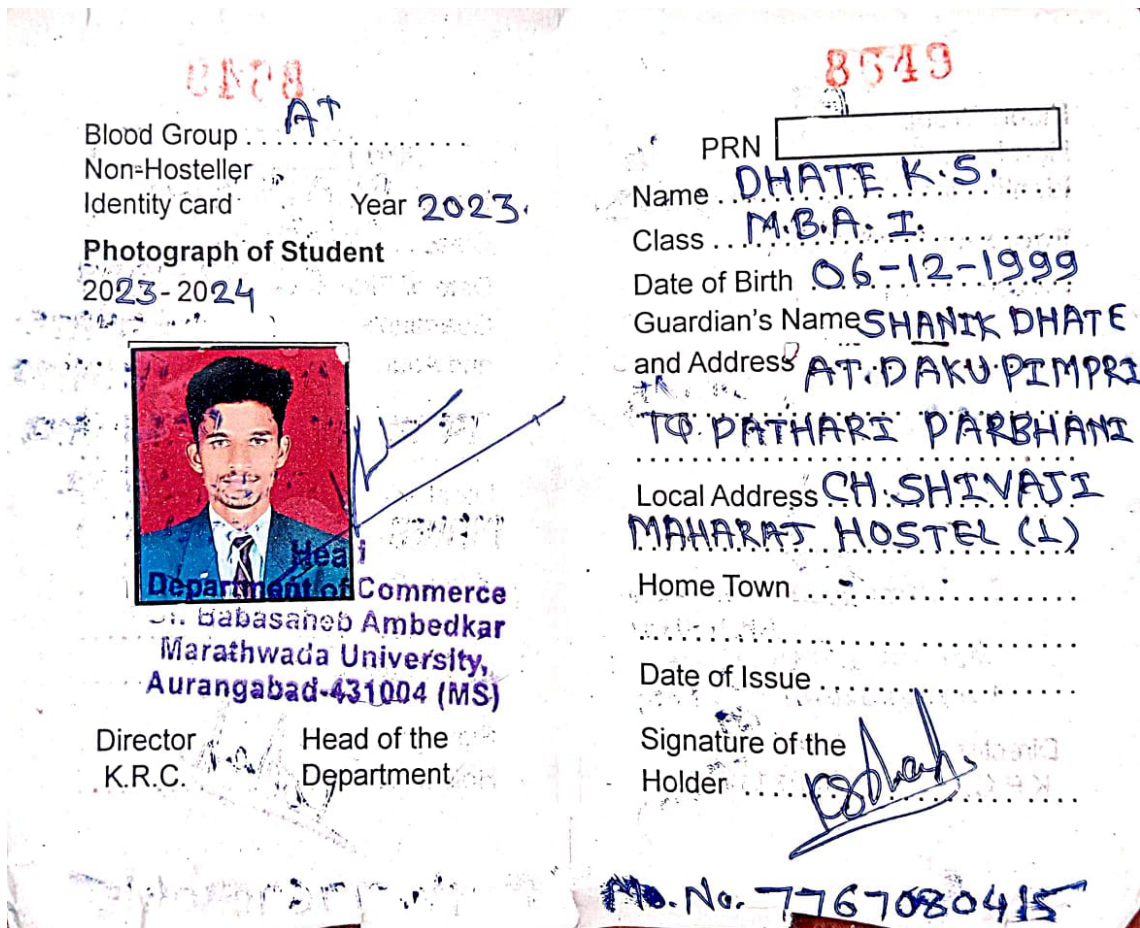 Blood Group ... A+
Non-Hosteller
Identity card Year 2023.
Photograph of Student
2023-2024
Head
Department of Commerce
Dr. Babasaheb Ambedkar
Marathwada University,
Aurangabad-431004 (MS)
Director Head of the
K.R.C. Department
8649
PRN
Name .. DHATE K.S.
Class ... M.B.A. I.
Date of Birth 06-12-1999
Guardian's Name SHANIK DHATE
and Address AT. DAKU PIMPRI
TQ. PATHARI PARBHANI
Local Address CH. SHIVAJI
MAHARAJ HOSTEL (1)
Home Town
Date of Issue
Signature of the
Holder
Mo. No. 7767080415